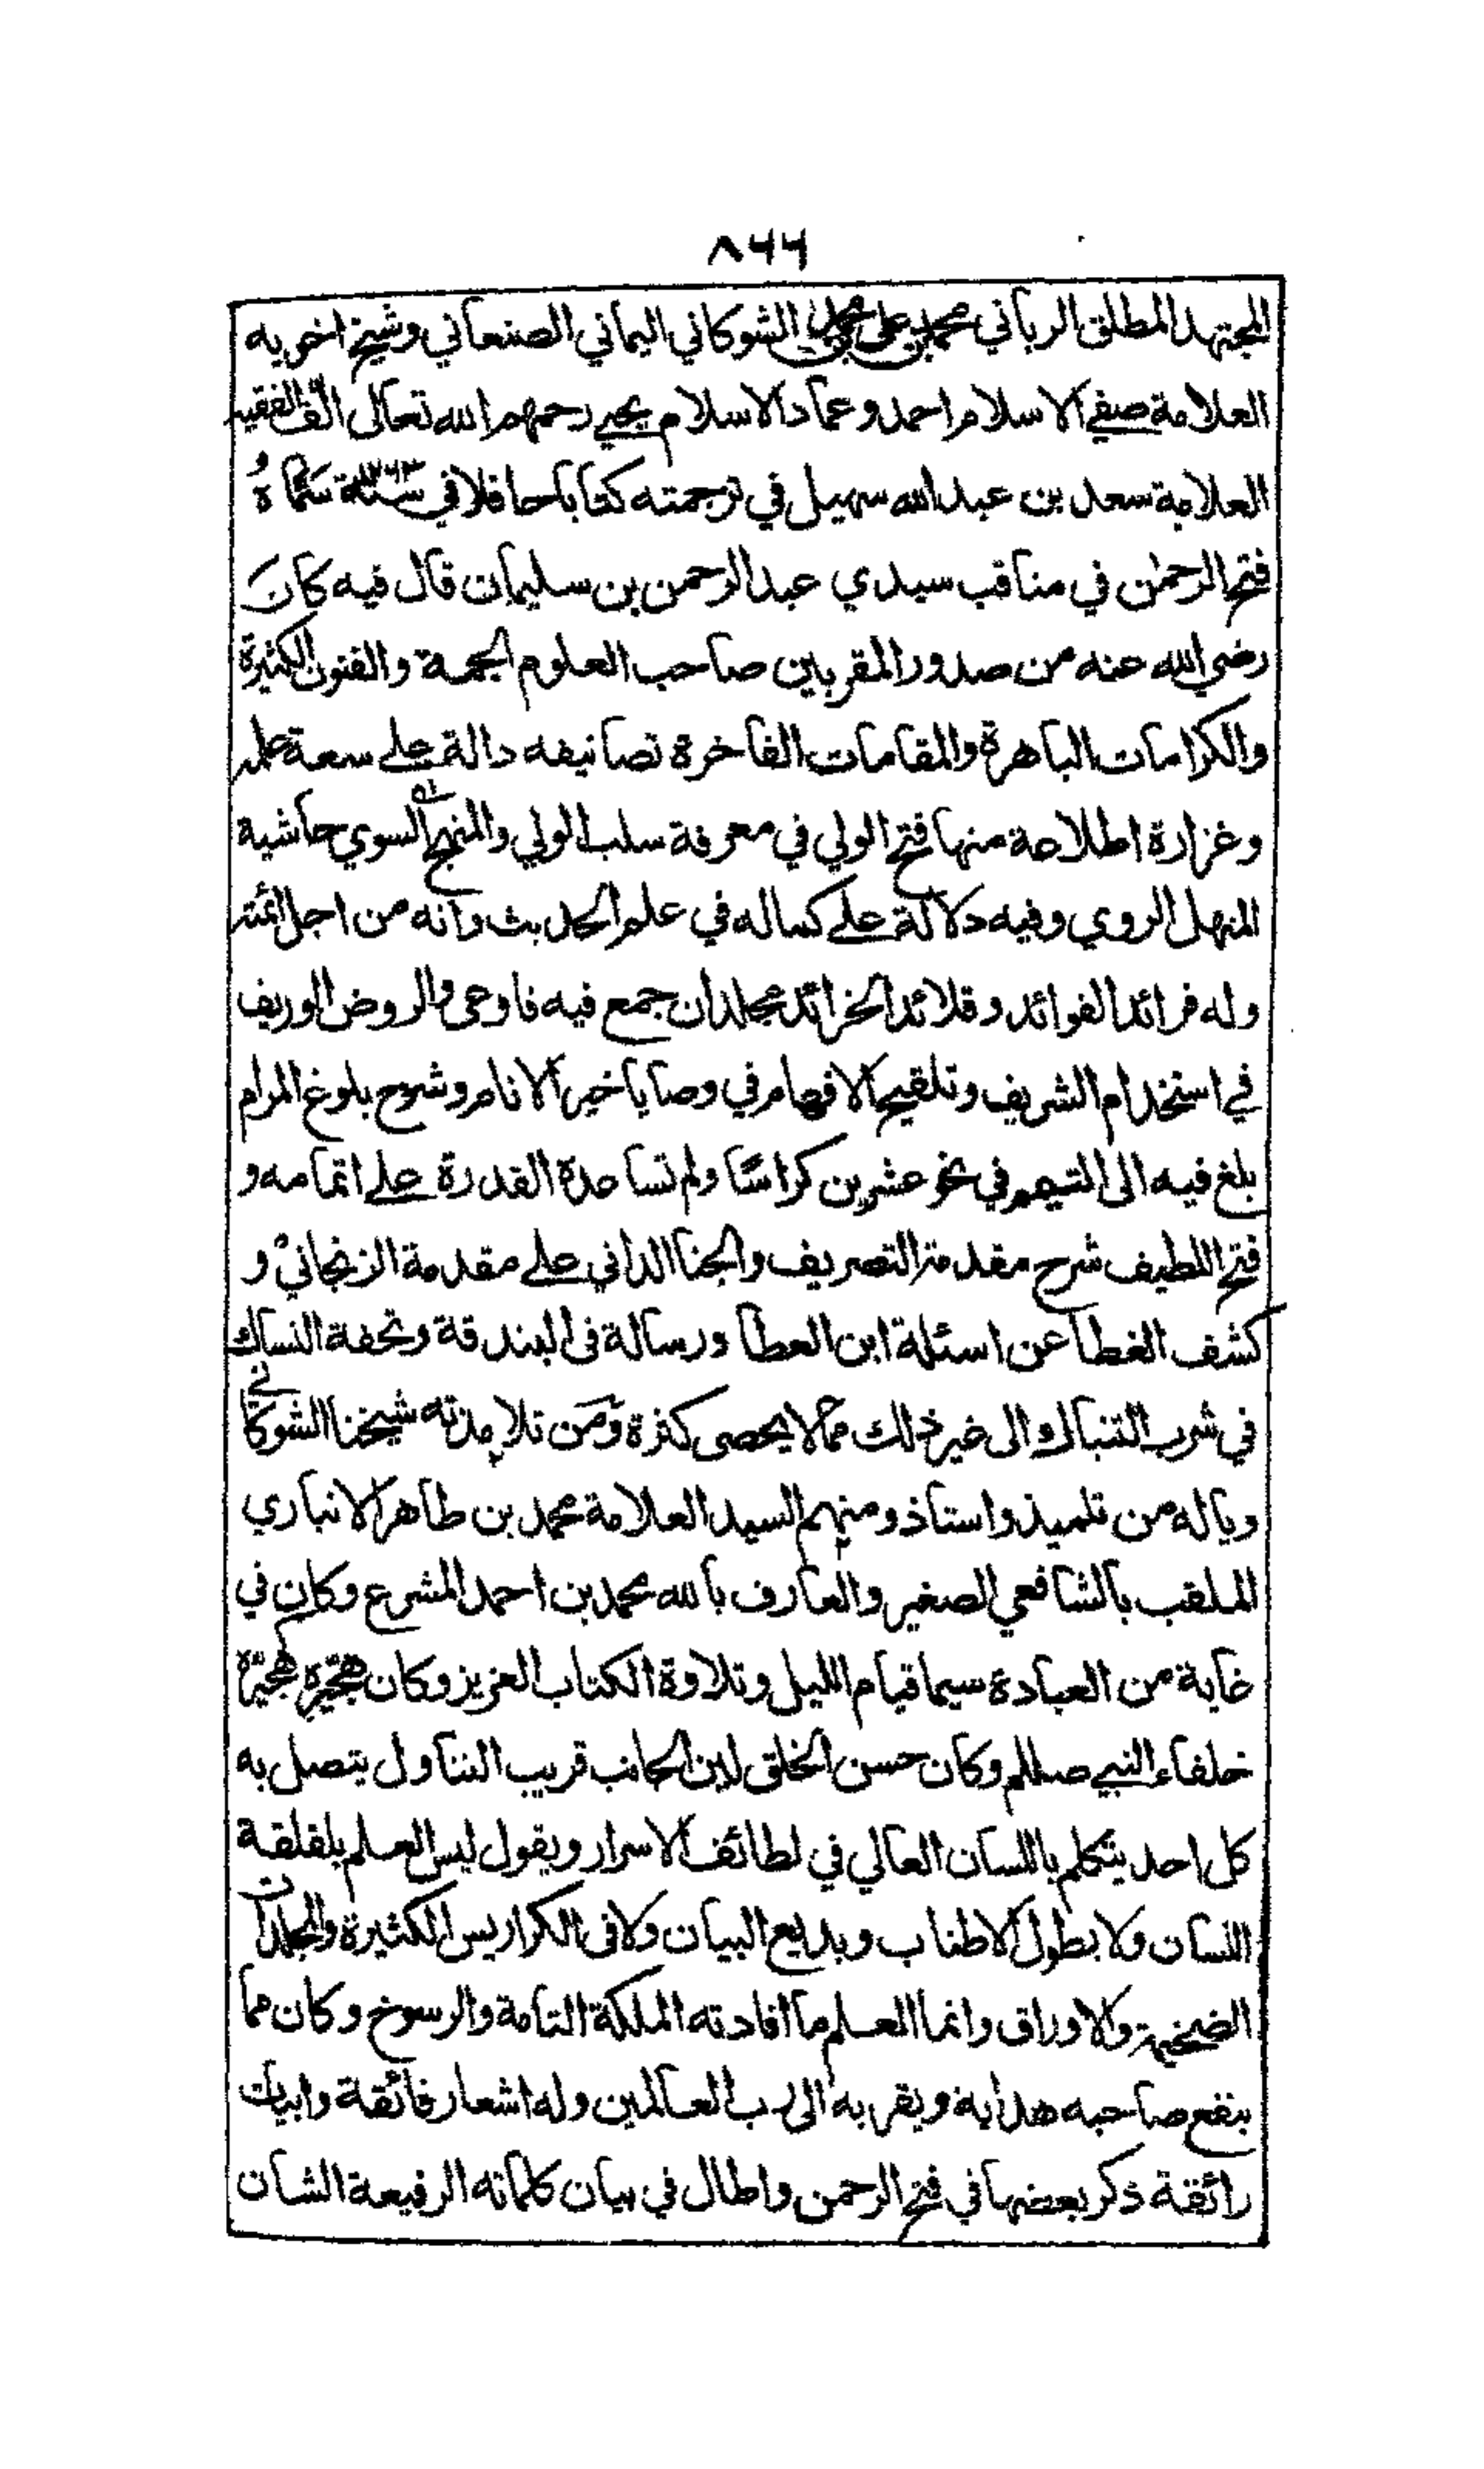 ٨٦٦
المجتهد المطلق الرباني محمد بن علي بن محمد الشوكاني اليماني الصنعاني وشيخ اخويه
العلامة صفي الاسلام احمد وعماد الاسلام يحيي رحمهم الله تعالى الّف الفقيه
العلامة سعد بن عبد الله سهيل في ترجمته كتابا حافلا في سنة سماه
فتح الرحمٰن في مناقب سيدي عبد الرحمن بن سليمان قال فيه كان
رضي الله عنه من صدور المقربين صاحب العلوم الجمة والفنون الكثيرة
والكرامات الباهرة والمقامات الفاخرة تصانيفه دالة علي سعة علمه
وغزارة اطلاعه منها فتح الولي في معرفة سلب الولي والمنهج السوي حاشية
المنهل الروي وفيه دلالة علي كماله في علم الحديث وانه من اجل ائمته
وله فرائد الفوائد وقلائد الخرائد مجلدان جمع فيه فاوعى والروض الوريف
في استخدام الشريف وتلقيح الافهام في وصايا خير الانام وشرح بلوغ المرام
بلغ فيه الى التيمم في نحو عشرين كراسًا ولم تساعده القدرة علي اتمامه و
فتح اللطيف شرح مقدمة التصريف والجنا الداني علي مقدمة الزنجاني و
كشف الغطا عن اسئلة ابن العطا ورسالة في البندقة وتحفة النساك
في شرب التنباك والى غير ذلك مما لا يحصى كثرة ومن تلامذته شيخنا الشوكاني
وياله من تلميذ واستاذ ومنهم السيد العلامة محمد بن طاهر الانباري
الملقب بالشافعي الصغير والعارف بالله محمد بن احمد المشرع وكان في
غاية من العبادة سيما قيام الليل وتلاوة الكتاب العزيز وكان هجيره هجيرة
خلفاء النبي صللم وكان حسن الخلق لين الجانب قريب التناول يتصل به
كل احد يتكلم باللسان العالي في لطائف الاسرار ويقول ليس العلم بلقلقة
اللسان ولا بطول الاطناب وبديع البيان ولا في الكراريس الكثيرة والمجلدات
الضخيمة والاوراق وانما العلم ما افادته الملكة التامة والرسوخ وكان مما
ينفع صاحبه هداية ويقربه الى رب العالمين وله اشعار فائقة وابيات
رائقة ذكر بعضها في فتح الرحمن واطال في بيان كلماته الرفيعة الشان